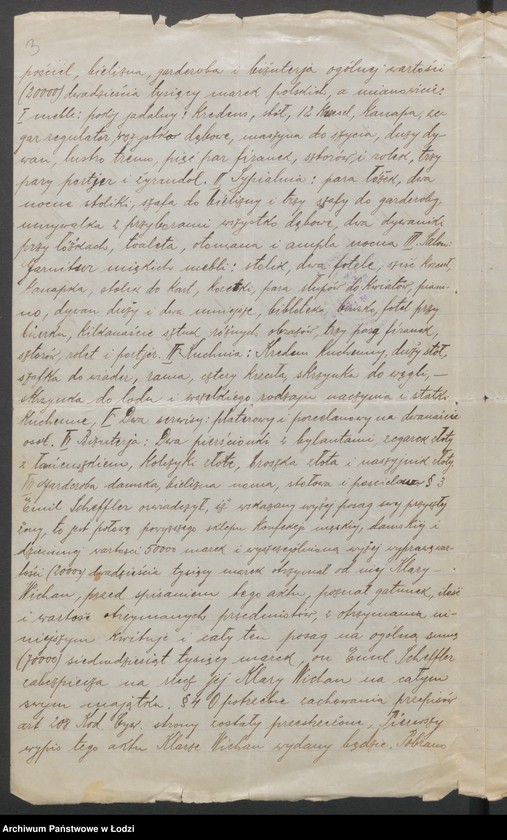 3
pościel, bielizna, garderoba i biżuterja ogólnej wartości
(20000) dwadzieścia tysięcy marek polskich, a mianowicie:
I meble: pokój jadalny: Kredens, stół, 12 krzeseł, kanapa, ze-
gar regulator, wszystko dębowe, maszyna do szycia, duży dy-
wan, lustro tremo, pięć par firanek, sztorów i rolet, trzy
pary portjer i żyrandol. II Sypialnia: para łóżek, dwa
nocne stoliki, szafa do bielizny i trzy szafy do garderoby,
umywalka z przyborami wszystko dębowe, dwa dywaniki
przy łóżkach, toaleta, otomana i ampla nocna III. Salon:
Garnitur miękich mebli: stolik, dwa fotele, sześć krzeseł,
kanapka, stolik do kart, kozetki, para słupów do kwiatów, piani-
no, dywan duży i dwa mniejsze, biblioteka, biurko, fotel przy
biurku, kilkanaście sztuk różnych obrazów, trzy pary firanek,
sztorów, rolet i portjer. IV Kuchnia: Kredens kuchenny, duży stół,
szafka do wiader, rama, cztery krzesła, skrzynka do węgli, —
skrzynka do lodu i wszelkiego rodzaju naczynia i statki
kuchenne, V Dwa serwisy: platerowy i porcelanowy na dwanaście
osób. VI Biżuterja: Dwa pierścionki z brylantami, zegarek złoty
z łańcuszkiem, kolczyki złote, broszka złota i naszyjnik złoty
VII Garderoba damska, bielizna nocna, stołowa i pościelowa § 3
Emil Scheffler oświadczył, iż wskazany wyżej posag swej przyszłej
żony, to jest połowę powyższego sklepu konfekcji męskiej, damskiej i
dziecinnej wartości 50000 marek i wyszczególnioną wyżej wyprawę war-
tości (20000) dwadzieścia tysięcy marek otrzymał od niej Klary —
Wichan, przed spisaniem tego aktu, poznał gatunek, ilość
i wartość otrzymanych przedmiotów, z otrzymania ni-
niejszym kwituje i cały ten posag na ogólną sumę
(70000) siedmdziesiąt tysięcy marek, on Emil Scheffler
zabezpiecza na rzecz Jej Klary Wichan na całym
swym majątku. § 4 O potrzebie zachowania przepisów
art 208 Kod. Cyw. strony zostały przestrzeżone, Pierwszy
wypis tego aktu Klarze Wichan wydany będzie. Pobrano
Archiwum Państwowe w Łodzi